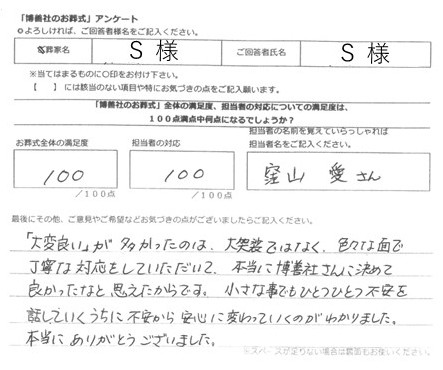 「博善社のお葬式」アンケート
○よろしければ、ご回答者様名をご記入ください。
葬家名 S 様 ご回答者氏名 S 様
※当てはまるものに○印をお付け下さい。
【 】には該当のない項目や特にお気づきの点をご記入願います。
「博善社のお葬式」全体の満足度、担当者の対応についての満足度は、
100点満点中何点になるでしょうか?
お葬式全体の満足度 担当者の対応 担当者の名前を覚えていらっしゃれば
担当者名をご記入ください。
100 100 窪山 愛さん
/100点 /100点
最後にその他、ご意見やご希望などお気づきの点がございましたらご記入ください。
「大変良い」が多かったのは、大袈裟ではなく、色々な面で
丁寧な対応をしていただいて、本当に博善社さんに決めて
良かったなと思えたからです。小さな事でもひとつひとつ不安を
話していくうちに不安から安心に変わっていくのがわかりました。
本当にありがとうございました。
※スペースが足りない場合は裏面もお使いください。